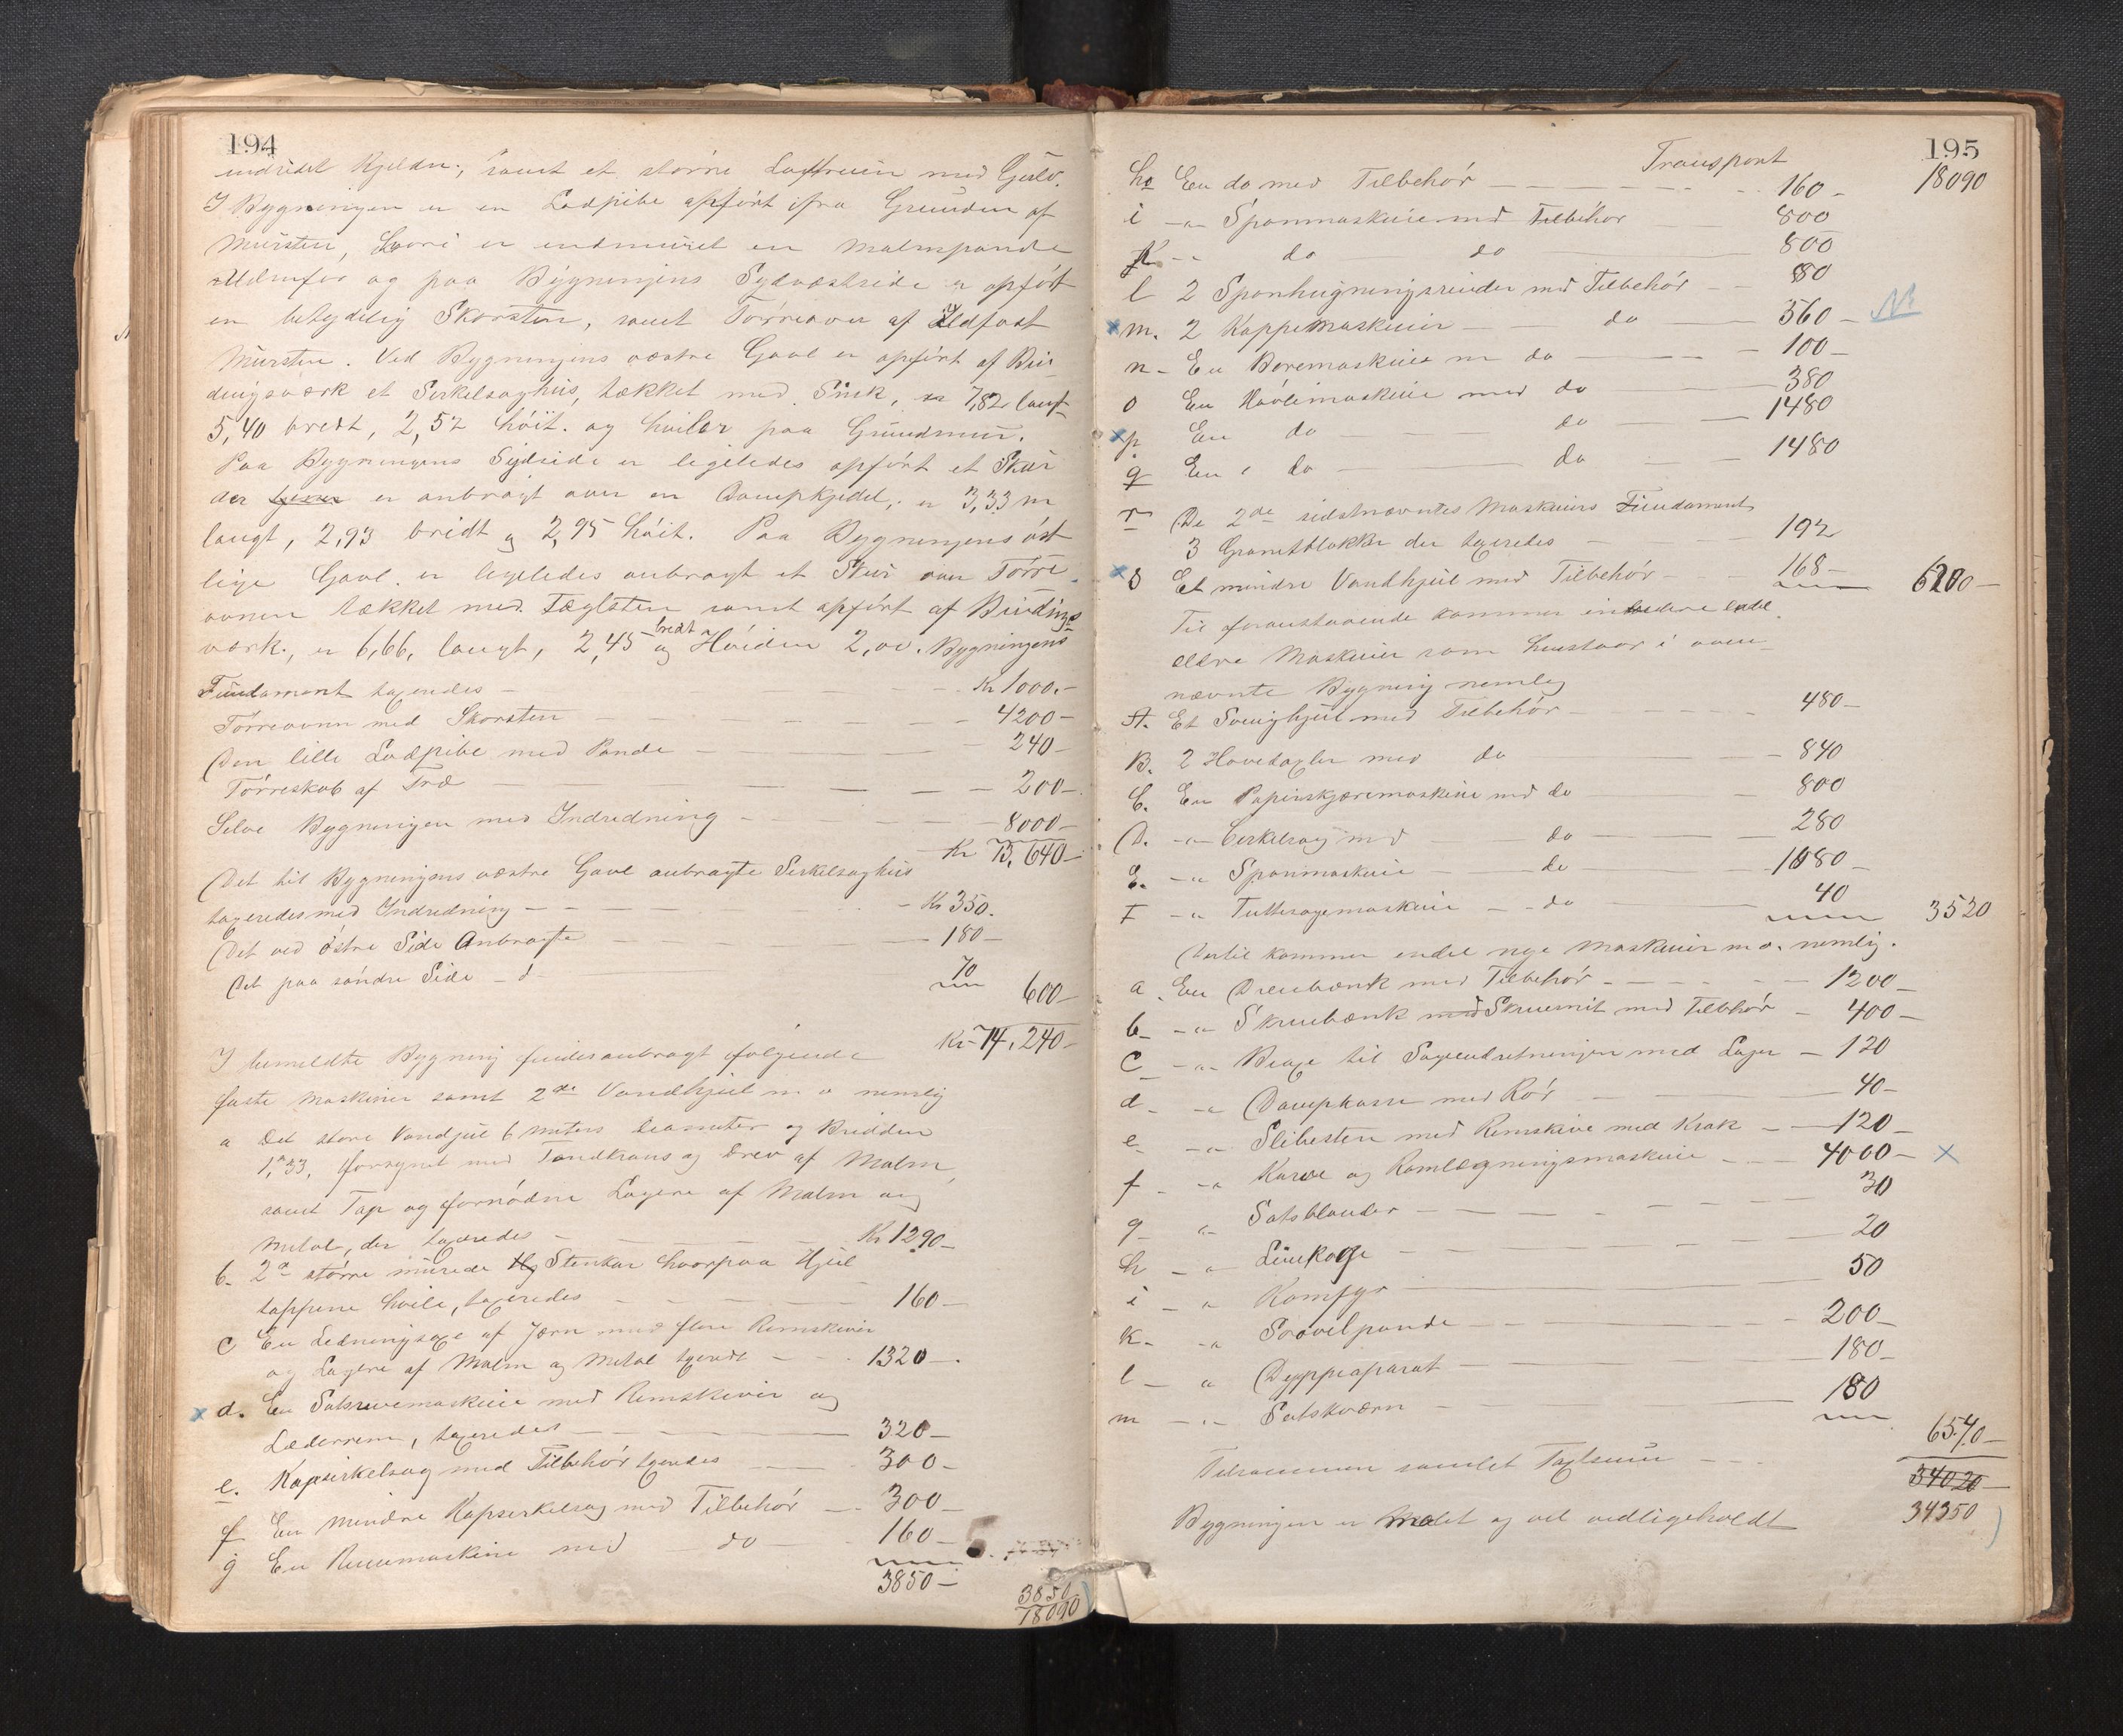 194
indredet Kjelder, samt et större Loftrum med Gulv.
I Bygningen er en Lodpibe opfört ifra Grunden af
Mursten, hvori er indmuret en Malmpande
udenfor og paa Bygningens Sydvestside er opfört
en betydelig Skorsten, samt Törreovn af Ildfast
Mursten. Ved Bygningens vestre Gavl er opfört af Bin-
dingsværk et Serkelsaghus, tækket med Sink, er 7,82 langt
5,40 bredt, 2,52 höit. og hviler paa Grundmur.
Paa Bygningens Sydside er ligeledes opfört et Skur
der er anbragt over en Dampkjedel, er 3,33 m
langt, 2,93 bredt og 2,95 höit. Paa Bygningens öst-
lige Gavl er ligeledes anbragt et Skur over Törre-
ovnen tækket med Tæglsten samt opfört af Bindings-
værk, er 6,66, langt, 2,45 bredt og Höiden 2,00. Bygningens
Fundament taxeredes — Kr 1000.-
Törreovnen med Skorsten — 4200-
Den lille Lodpibe med Pande — 240-
Törreskab af Træ — 200-
Selve Bygningen med Indredning — 8000-
Kr 13,640-
Det til Bygningens vestre Gavl anbragte Serkelsaghus
taxeredes med Indredning — Kr 350.
Det ved östre Side Anbragte — 180-
Det paa söndre Side d — 70
600-
Kr 14,240-
I bemeldte Bygning findes anbragt fölgende
faste Maskiner samt 2de Vandhjul m v nemlig
a Det store Vandjul 6 meters Diameter og Bredden
1,m33, forsynet med Tandkrans og Drev af Malm,
samt Tap og fornödne Lagere af Malm og
Metal, der taxeredes — Kr 1290-
b- 2de större murede Stenkar hvorpaa Hjul
tappene hvile, taxeredes — 160-
c En Ledningsaxe af Jærn med flere Remskiver
og Lagere af Malm og Metal taxeredt — 1320-.
x d. En Satsrivemaskine med Remskiver og
Læderrem, taxeredes — 320-
e. Kapserkelsag med Tilbehör taxeredes — 300-
f En mindre Kapserkelsag med Tilbehör — 300-
g En Rensemaskine med do — 160-
3850-
3850
18090
195
Transport 18090
h En do med Tilbehör — 160-
i -"- Sponmaskine med Tilbehör 800
k -"- do do 800
l 2 Sponhugningsrender med Tilbehör — 80
x m. 2 Kappemaskiner — do — 360-
n- En Boremaskine m do — 100-
o En Hövlemaskine med do 380
x p. En do — do — 1480
q En do — do — 1480
r De 2de sidstnævntes Maskiners Fundament
3 Granitblokke der taxeredes — 192
x s Et mindre Vandhjul med Tilbehör — 168- 6200-
Til foranstaaende kommer endvidere endel
ældre Maskiner som henstaar i oven-
nævnte Bygning nemlig
A. Et Svinghjul med Tilbehör — 480-
B. 2 Hovedaxler med do — 840
C. En Papirskjæremaskine med do — 800
D. -"- Cirkelsag med — do — 280
E. -"- Sponmaskine — do — 1080-
F -"- Tuttesagemaskine — do — 40 3520
Dertil kommer endel nye Maskiner m.v. nemlig.
a. En Dreiebænk med Tilbehör — 1200-
b- -"- Skruebænk med Skruesnit med Tilbehör — 400-
c -"- Bræge til Sagindretningen med Lager — 120
d- -"- Dampkasse med Rör — 40-
e- -"- Slibesten med Remskive med Krak — 120-
f- -"- Karve og Ramlægningsmaskine — 4000- x
g- -"- Satsblander — 30
h- -"- Limkoge — 20
i- -"- Komfyr — 50
k- -"- Svovelpande — 200-
l- -"- Dyppeaparat — 180-
m -"- Satskværn — 180
6540-
Tilsammen samlet Taxtsum — 34020-
34350
Bygningen er Malet og vel vedligeholdt